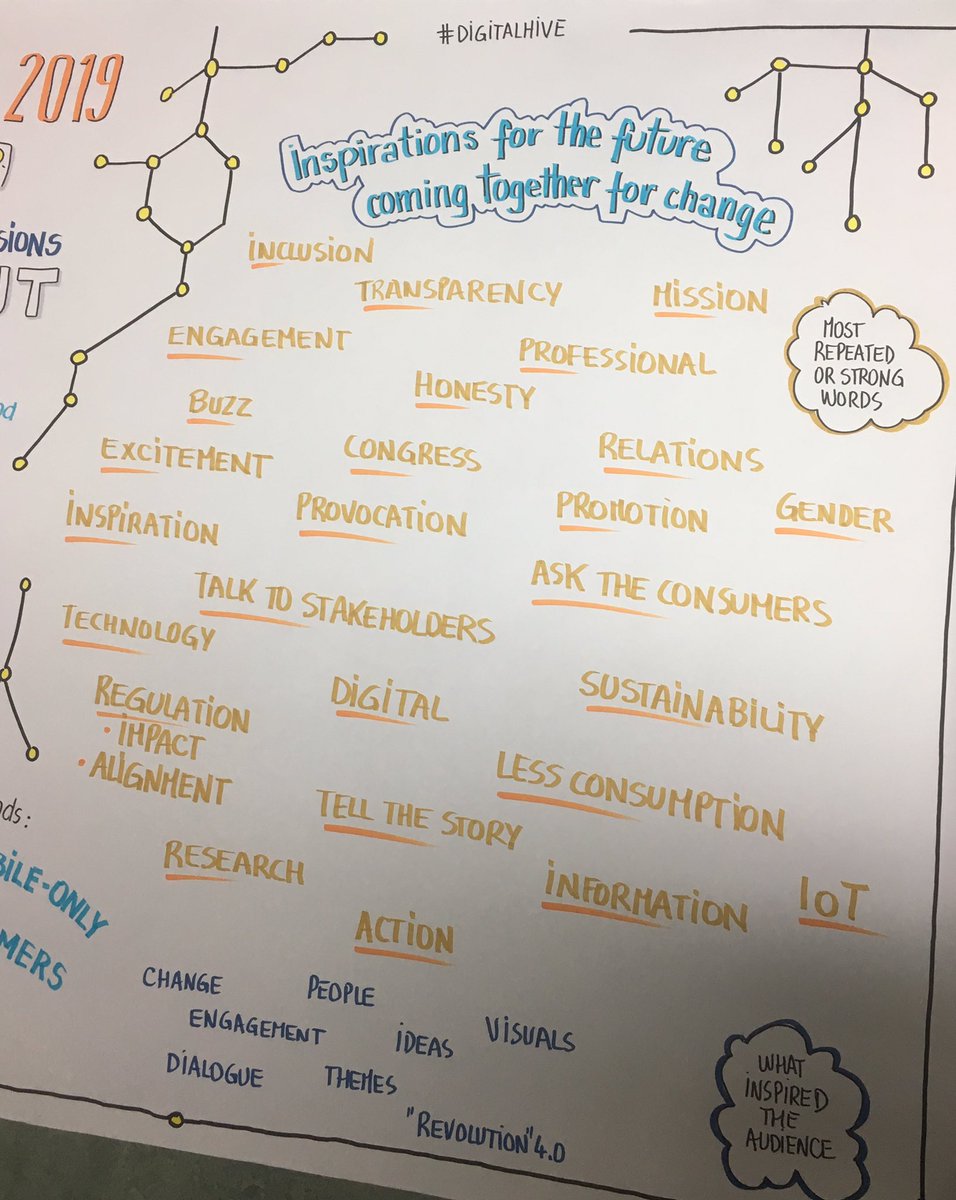 #DIGITALHIVE
2019
Inspirations for the future
coming together for change
INCLUSION
TRANSPARENCY
MISSION
ENGAGEMENT
PROFESSIONAL
MOST
REPEATED
OR STRONG
WORDS
BUZZ
HONESTY
EXCITEMENT
CONGRESS
RELATIONS
INSPIRATION
PROVOCATION
PROMOTION
GENDER
TALK TO STAKEHOLDERS
ASK THE CONSUMERS
TECHNOLOGY
REGULATION
• IMPACT
• ALIGNMENT
DIGITAL
SUSTAINABILITY
LESS CONSUMPTION
TELL THE STORY
RESEARCH
INFORMATION
IoT
ACTION
BILE-ONLY
MERS
CHANGE
PEOPLE
ENGAGEMENT
IDEAS
VISUALS
DIALOGUE
THEMES
"REVOLUTION" 4.0
WHAT
INSPIRED
THE
AUDIENCE